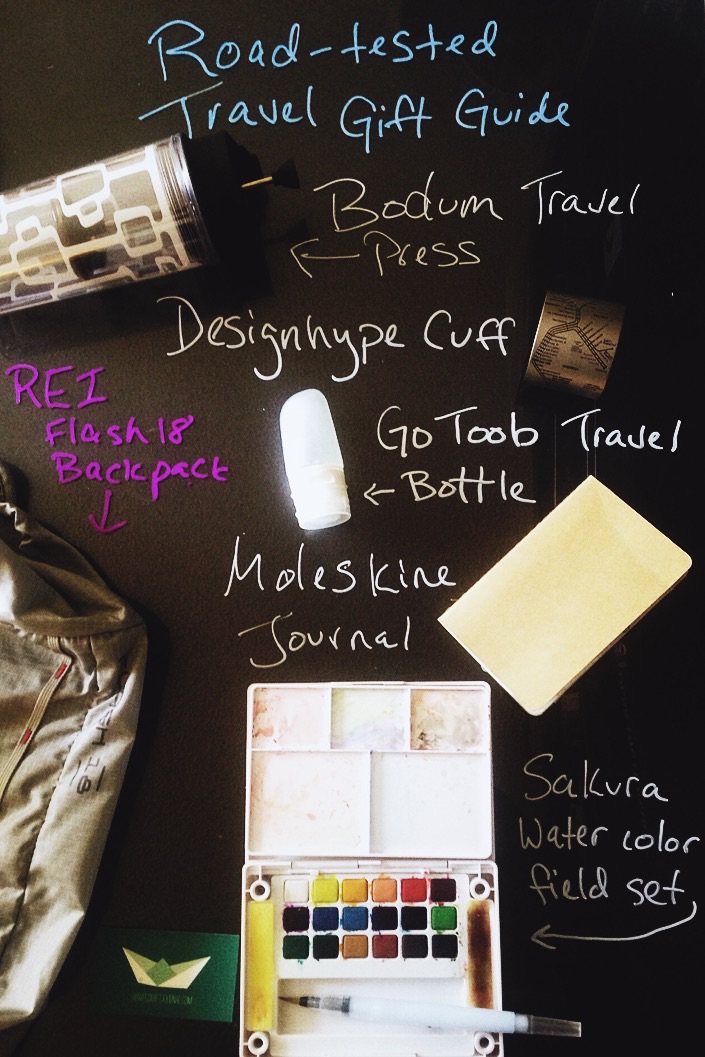 Road-tested
Travel Gift Guide
Bodum Travel
Press
Designhype Cuff
REI
Flash18
Backpack
GoToob Travel
Bottle
Moleskine
Journal
Sakura
Water color
field set